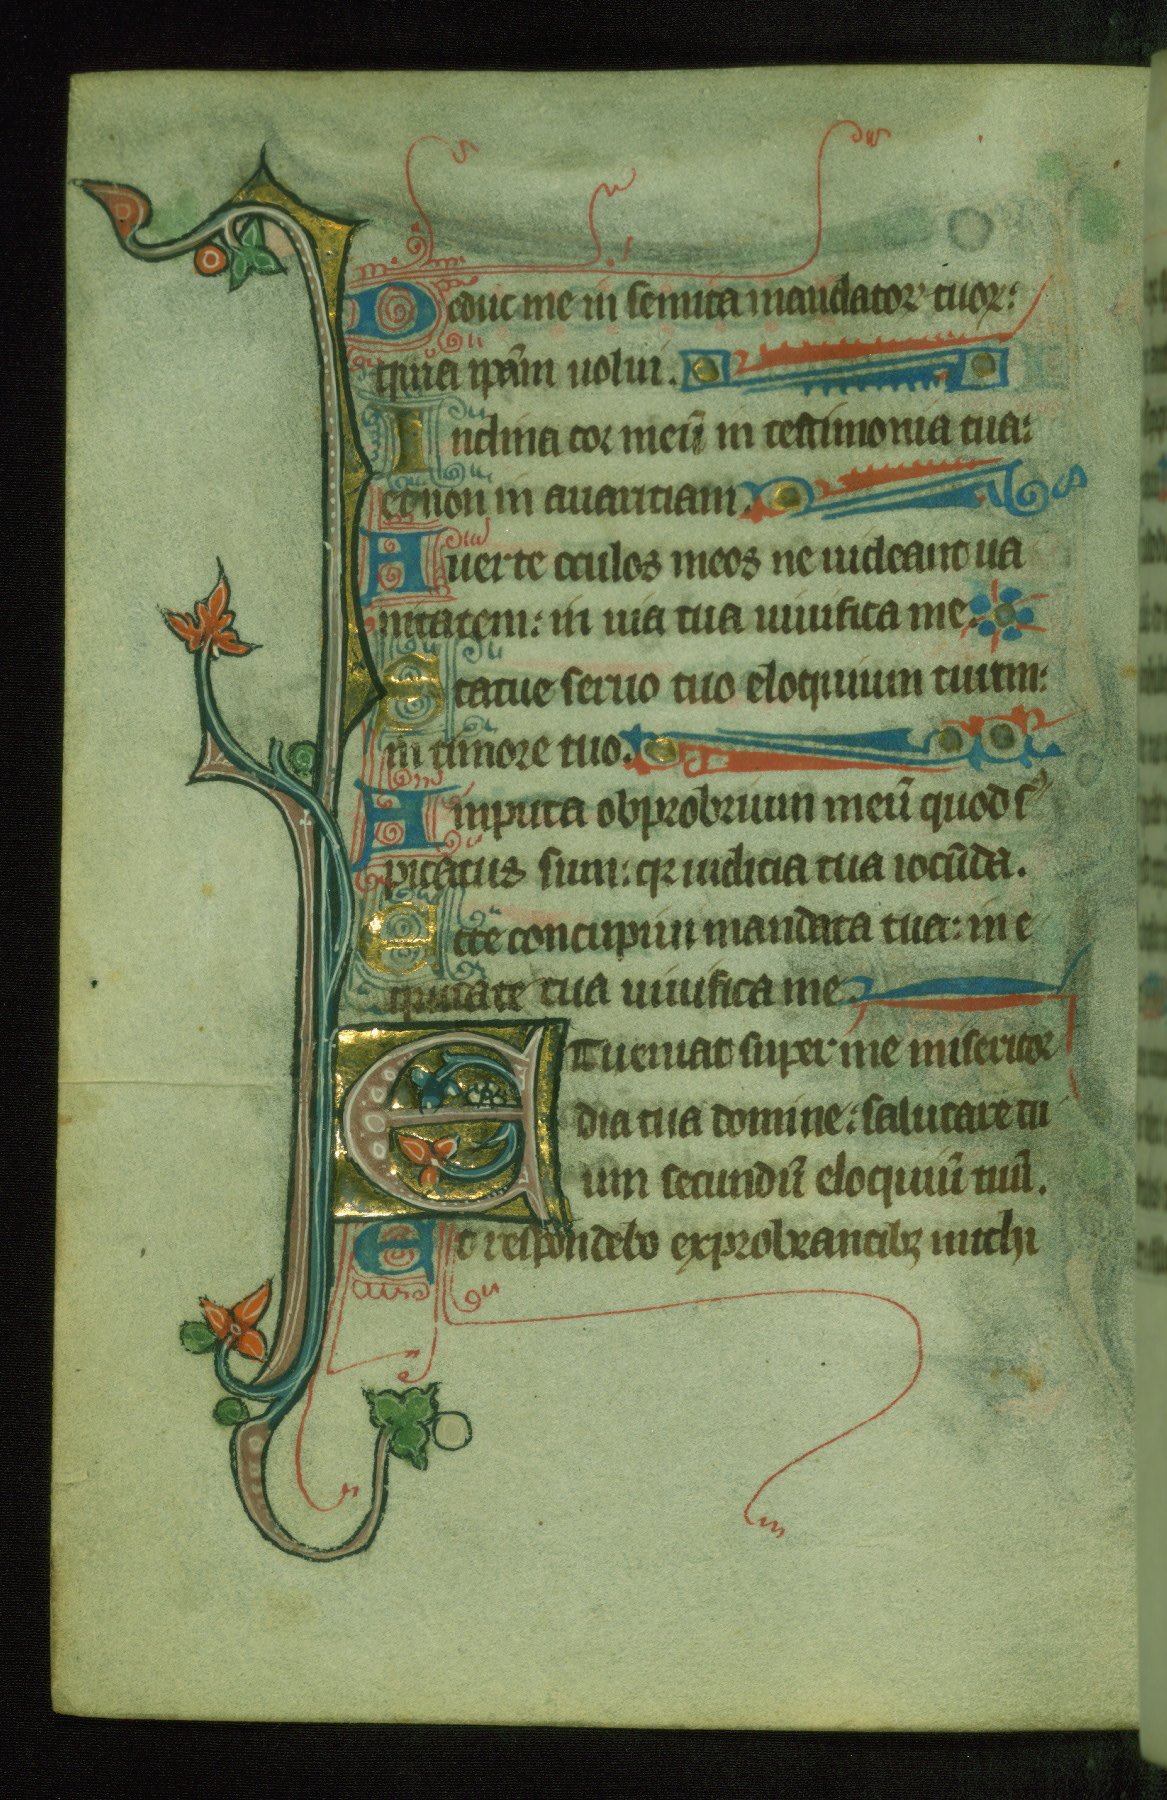 Deduc me in semita mandatoꝝ tuoꝝ:
quia ip̄am uolui.
Inclina cor meū in testimonia tua:
et non in auaritiam.
Auerte oculos meos ne uideant ua
nitatem: in uia tua uiuifica me.
Statue seruo tuo eloquium tuum:
in timore tuo.
Amputa obprobrium meū quod s
picatus sum: qr iudicia tua iocūda.
Ecce concupiui mandata tua: in e
quitate tua uiuifica me.
Et ueniat super me misericor
dia tua domine: salutare tu
um secundū eloquiū tuū.
Et respondebo exprobrantibꝫ michi